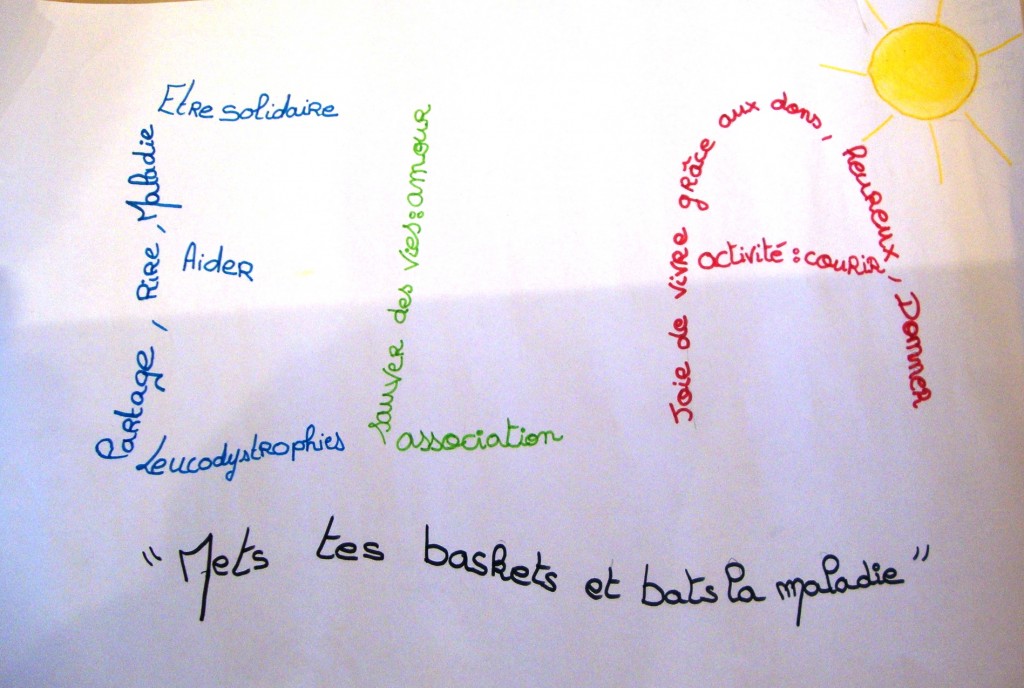 Etre solidaire
Partage, Rire, Maladie
Aider
Leucodystrophies
Sauver des vies: amour
association
Joie de vivre grâce aux dons, heureux, Donner
activité: courir
"Mets tes baskets et bats la maladie"